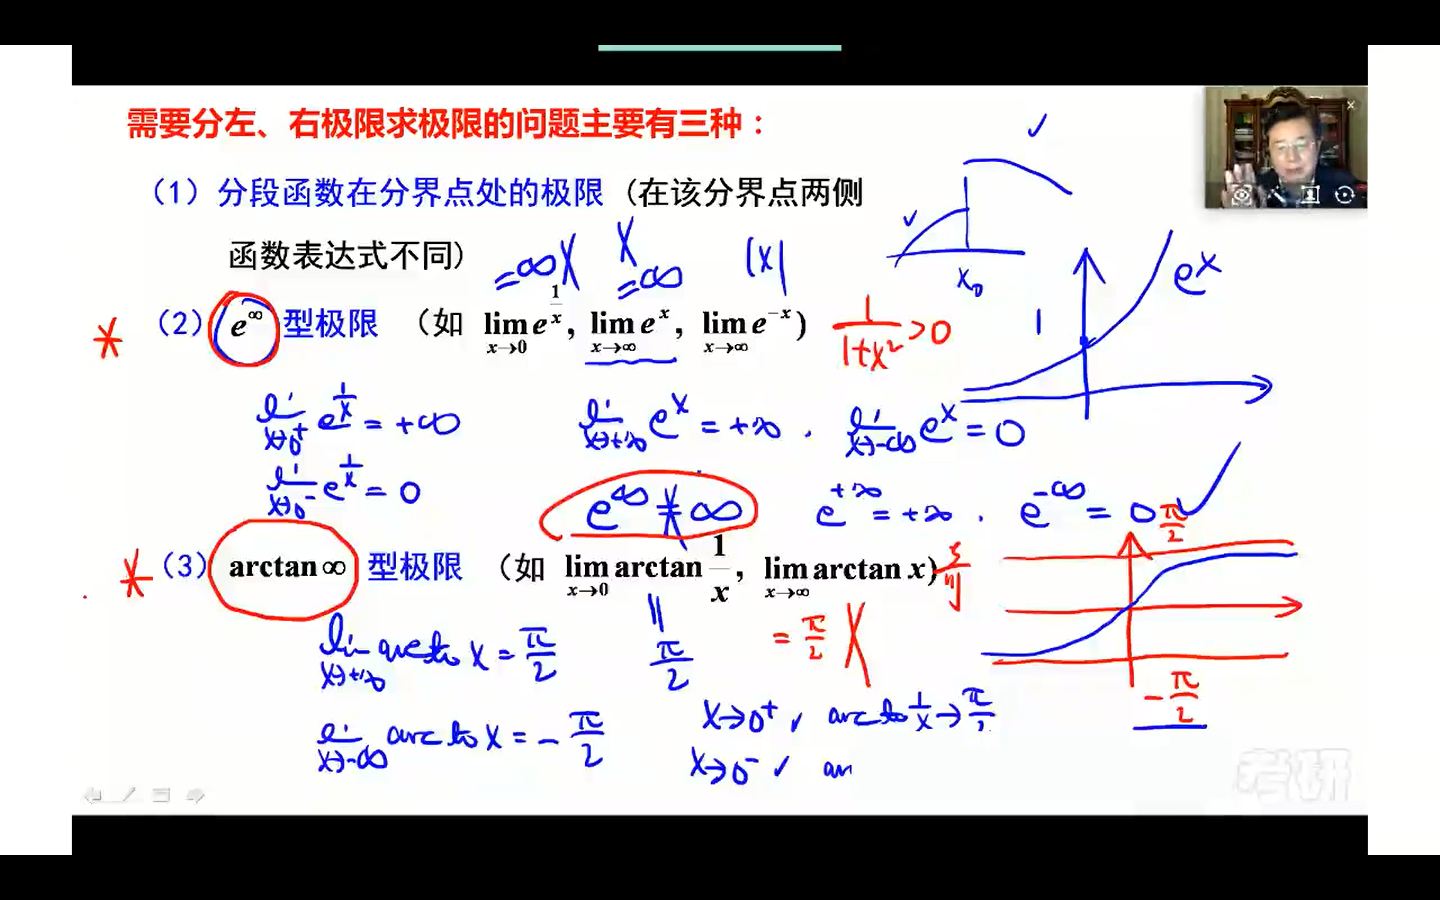 需要分左、右极限求极限的问题主要有三种：
(1) 分段函数在分界点处的极限 (在该分界点两侧
函数表达式不同)
=∞ X X =∞ |x|
x₀
eˣ
1
(2) e^∞ 型极限 (如 lim_{x→0} e^{1/x}, lim_{x→∞} e^x, lim_{x→∞} e^{-x})
1/(1+x²) > 0
lim_{x→0⁺} e^{1/x} = +∞ lim_{x→+∞} e^x = +∞ . lim_{x→-∞} e^x = 0
lim_{x→0⁻} e^{1/x} = 0
e^∞ ≠ ∞ e^{+∞} = +∞ . e^{-∞} = 0
π/2
(3) arctan∞ 型极限 (如 lim_{x→0} arctan 1/x, lim_{x→∞} arctan x)
= π/2 X
lim_{x→+∞} arctan x = π/2 π/2
-π/2
x→0⁺ ✓ arctan 1/x → π/2
lim_{x→-∞} arctan x = -π/2
x→0⁻ ✓ arc
考研